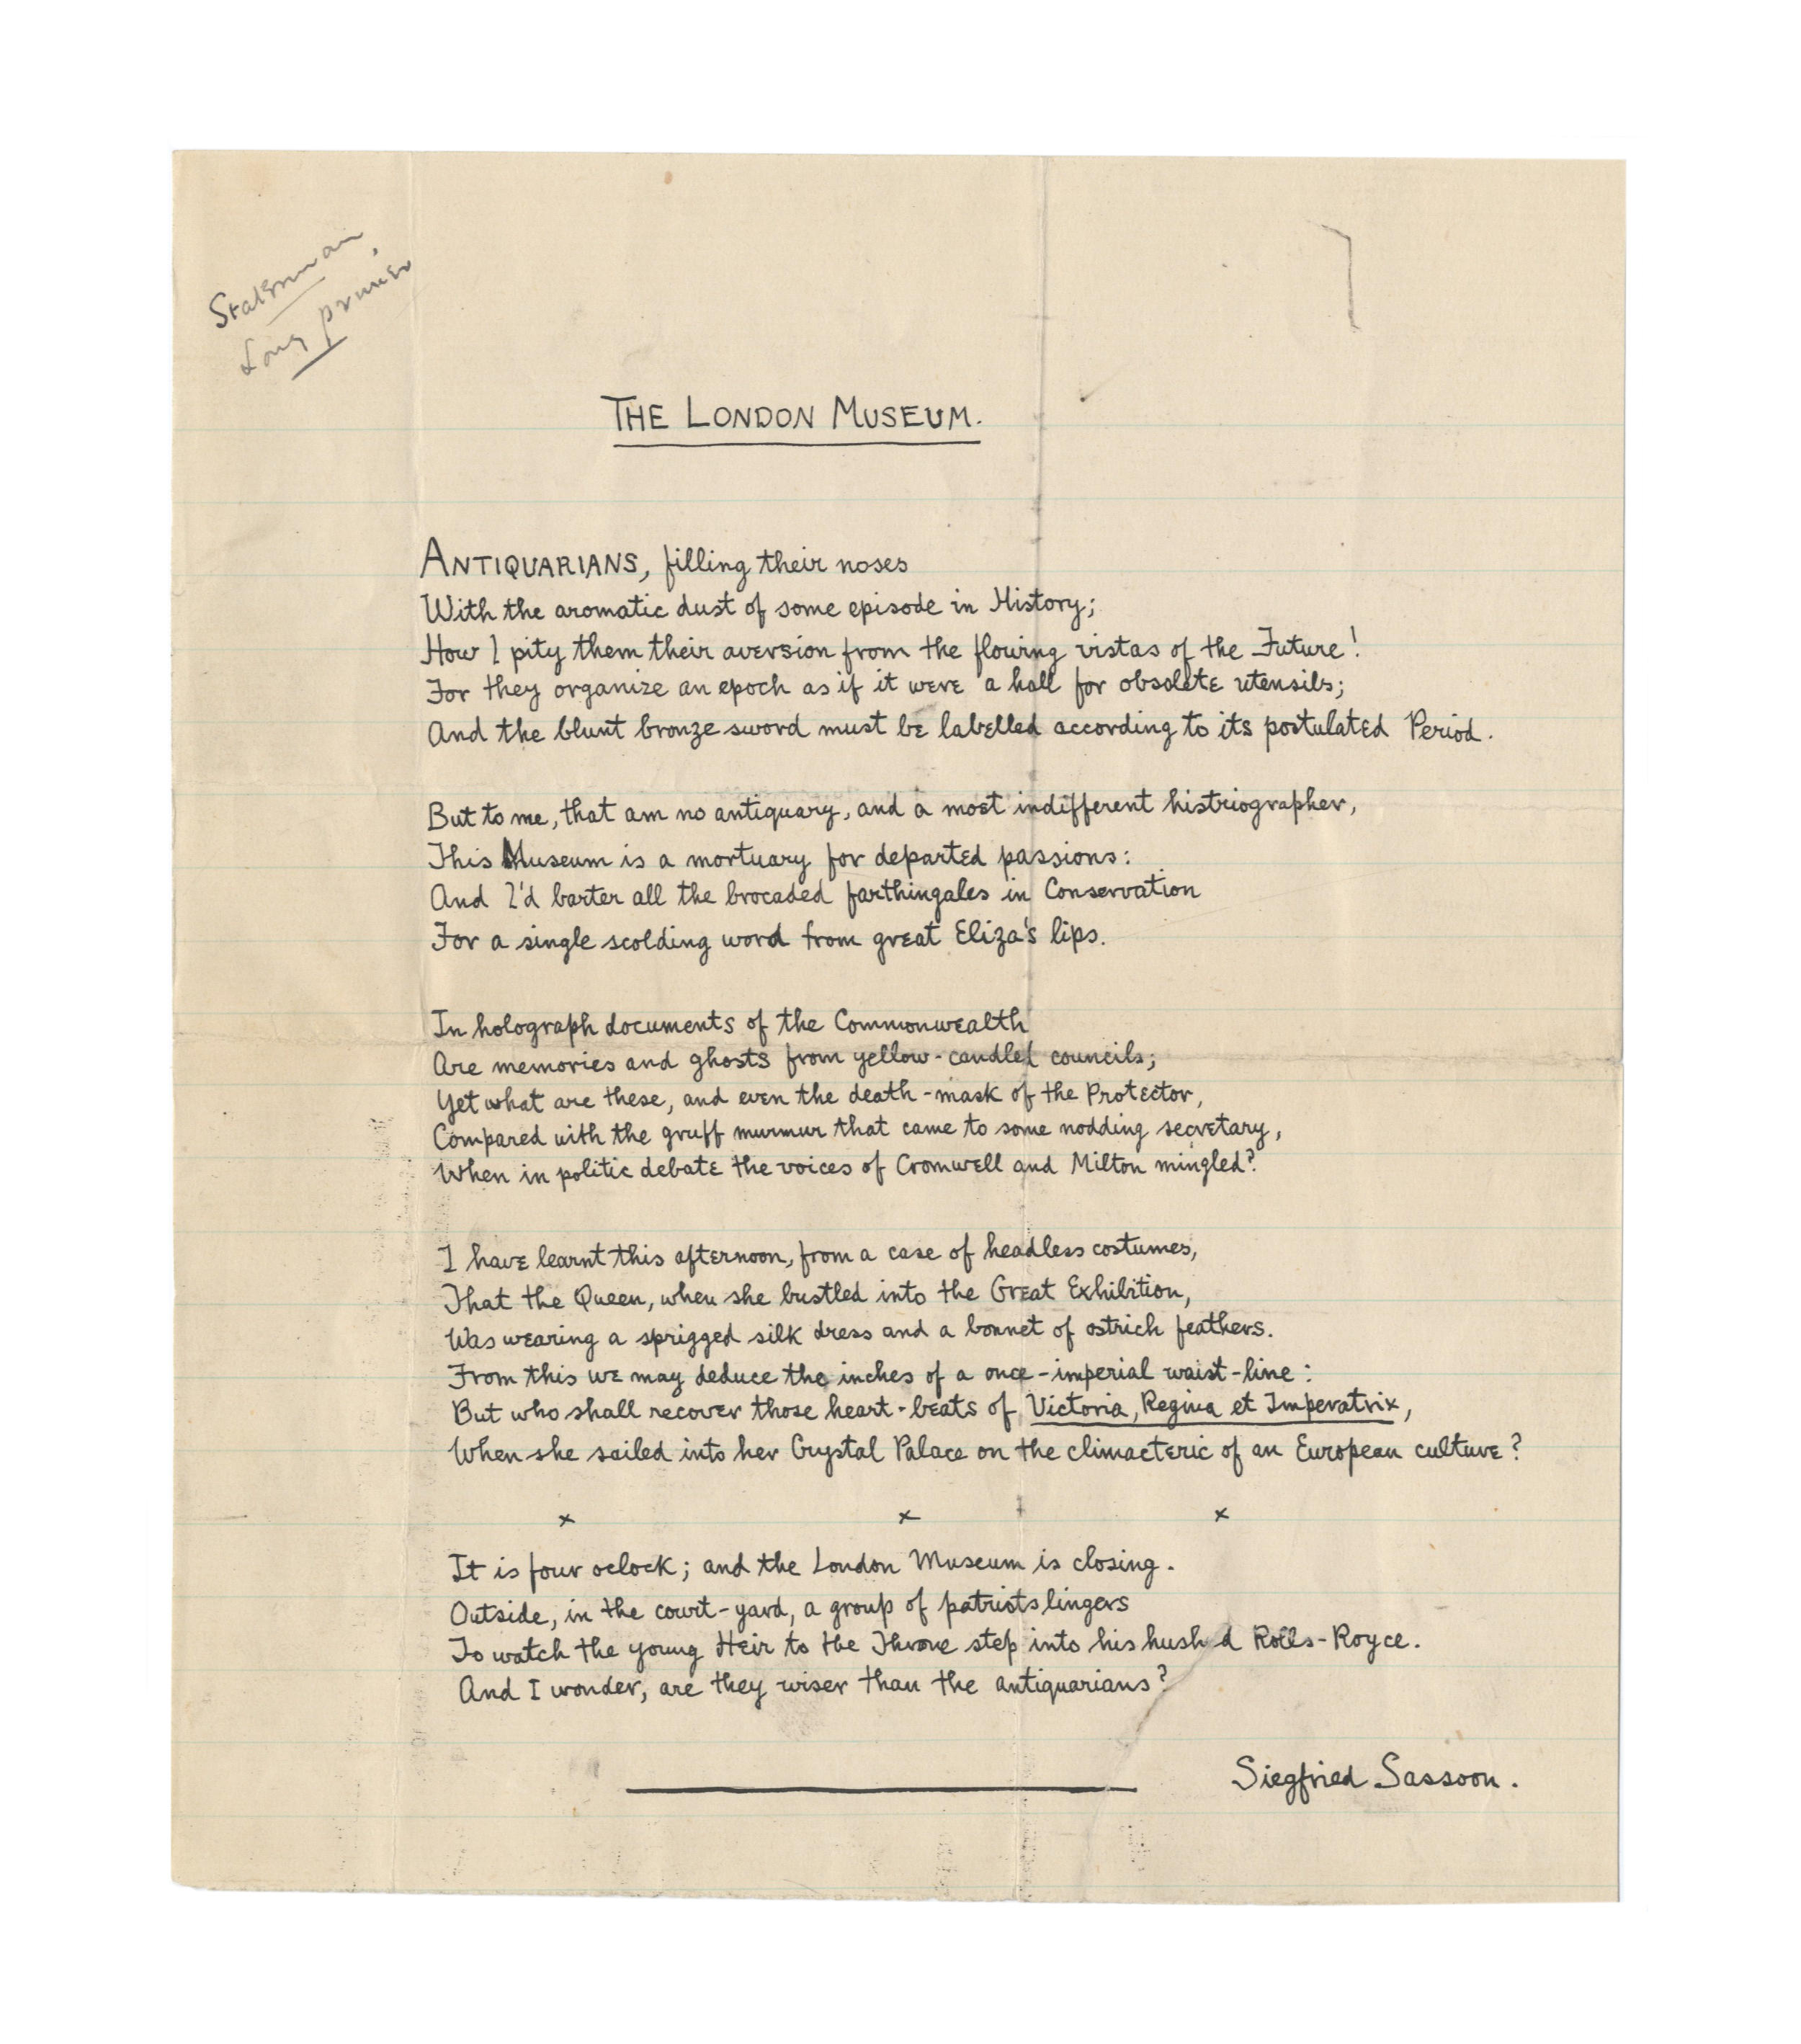 Statesman,
Long primer
THE LONDON MUSEUM.
ANTIQUARIANS, filling their noses
With the aromatic dust of some episode in History;
How I pity them their aversion from the flowing vistas of the Future!
For they organize an epoch as if it were a hall for obsolete utensils;
And the blunt bronze sword must be labelled according to its postulated Period.
But to me, that am no antiquary, and a most indifferent histriographer,
This Museum is a mortuary for departed passions:
And I'd barter all the brocaded farthingales in Conservation
For a single scolding word from great Eliza's lips.
In holograph documents of the Commonwealth
Are memories and ghosts from yellow-candled councils;
Yet what are these, and even the death-mask of the Protector,
Compared with the gruff murmur that came to some nodding secretary,
When in politic debate the voices of Cromwell and Milton mingled?
I have learnt this afternoon, from a case of headless costumes,
That the Queen, when she bustled into the Great Exhibition,
Was wearing a sprigged silk dress and a bonnet of ostrich feathers.
From this we may deduce the inches of a once-imperial waist-line:
But who shall recover those heart-beats of Victoria, Regina et Imperatrix,
When she sailed into her Crystal Palace on the climacteric of an European culture?
x x x
It is four oclock; and the London Museum is closing.
Outside, in the court-yard, a group of patriots lingers
To watch the young Heir to the Throne step into his hushed Rolls-Royce.
And I wonder, are they wiser than the antiquarians?
Siegfried Sassoon.